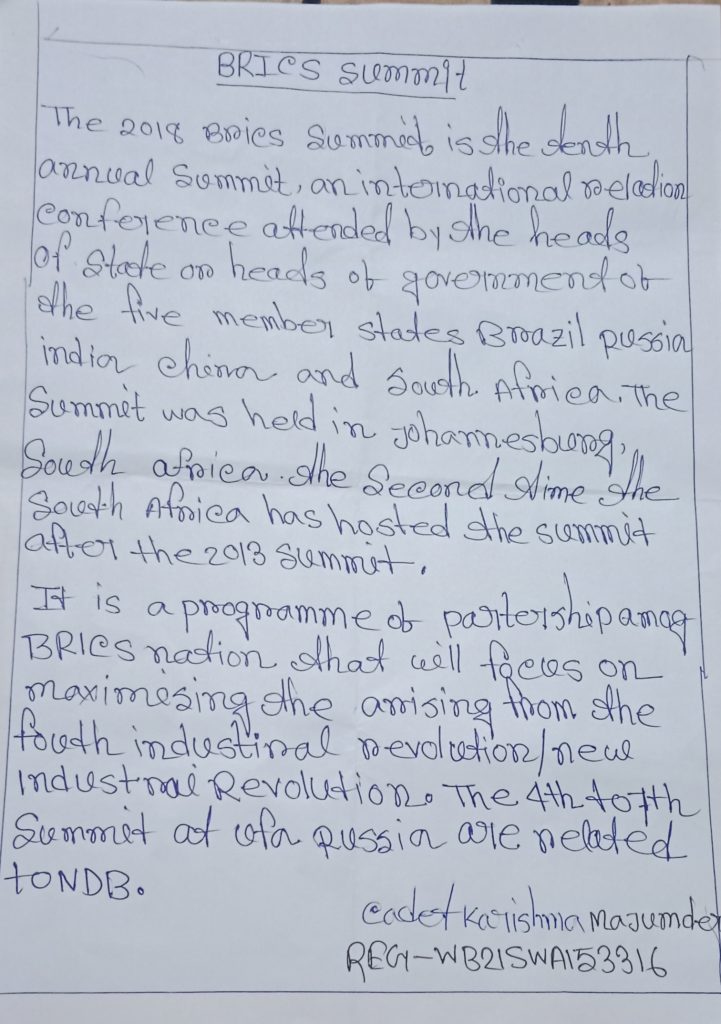 BRICS Summit
The 2018 Brics Summit, is the tenth
annual Summit, an international relation
conference attended by the heads
of State or heads of government of
the five member states Brazil Russia
india china and South Africa. The
Summit was held in Johannesburg,
South africa. the Second time the
South Africa has hosted the summit
after the 2013 Summit.
It is a programme of partership amog
BRICS nation that will focus on
maximising the arising from the
fouth industiral revolution/new
Industrial Revolution. The 4th to 7th
Summit at ufa Russia are related
to NDB.
cadet Karishma Majumder
REG-WB21SWA153316